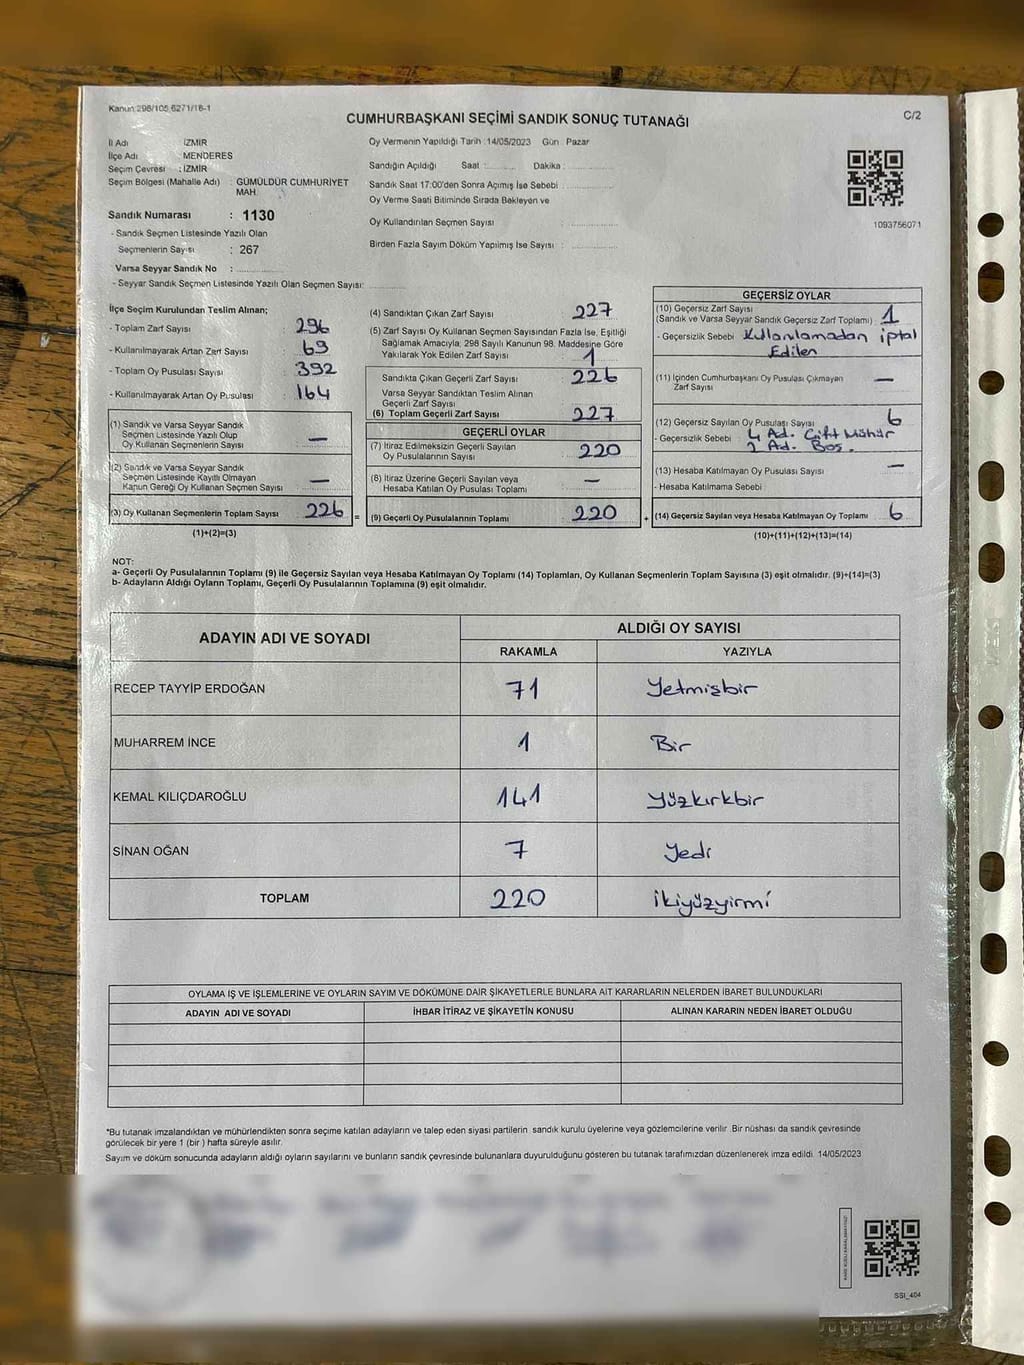 Kanun 298/105 6271/18-1
CUMHURBAŞKANI SEÇİMİ SANDIK SONUÇ TUTANAĞI
C/2
İl Adı : İZMİR
İlçe Adı : MENDERES
Seçim Çevresi : İZMİR
Seçim Bölgesi (Mahalle Adı) : GÜMÜLDÜR CUMHURİYET MAH.
Sandık Numarası : 1130
- Sandık Seçmen Listesinde Yazılı Olan
Seçmenlerin Sayısı : 267
Varsa Seyyar Sandık No :
- Seyyar Sandık Seçmen Listesinde Yazılı Olan Seçmen Sayısı:
Oy Vermenin Yapıldığı Tarih : 14/05/2023 Gün : Pazar
Sandığın Açıldığı Saat : Dakika :
Sandık Saat 17:00'den Sonra Açımış İse Sebebi :
Oy Verme Saati Bitiminde Sırada Bekleyen ve
Oy Kullandırılan Seçmen Sayısı :
Birden Fazla Sayım Döküm Yapılmış İse Sayısı :
1093756071
İlçe Seçim Kurulundan Teslim Alınan;
- Toplam Zarf Sayısı : 296
- Kullanılmayarak Artan Zarf Sayısı : 69
- Toplam Oy Pusulası Sayısı : 392
- Kullanılmayarak Artan Oy Pusulası : 164
(1) Sandık ve Varsa Seyyar Sandık
Seçmen Listesinde Yazılı Olup
Oy Kullanan Seçmenlerin Sayısı : —
(2) Sandık ve Varsa Seyyar Sandık
Seçmen Listesinde Kayıtlı Olmayan
Kanun Gereği Oy Kullanan Seçmen Sayısı : —
(3) Oy Kullanan Seçmenlerin Toplam Sayısı : 226 =
(1)+(2)=(3)
(4) Sandıktan Çıkan Zarf Sayısı : 227
(5) Zarf Sayısı Oy Kullanan Seçmen Sayısından Fazla İse, Eşitliği
Sağlamak Amacıyla; 298 Sayılı Kanunun 98. Maddesine Göre
Yakılarak Yok Edilen Zarf Sayısı : 1
Sandıkta Çıkan Geçerli Zarf Sayısı : 226
Varsa Seyyar Sandıktan Teslim Alınan
Geçerli Zarf Sayısı :
(6) Toplam Geçerli Zarf Sayısı : 227
GEÇERLİ OYLAR
(7) İtiraz Edilmeksizin Geçerli Sayılan
Oy Pusulalarının Sayısı : 220
(8) İtiraz Üzerine Geçerli Sayılan veya
Hesaba Katılan Oy Pusulası Toplamı : —
(9) Geçerli Oy Pusulalarının Toplamı : 220 +
GEÇERSİZ OYLAR
(10) Geçersiz Zarf Sayısı
(Sandık ve Varsa Seyyar Sandık Geçersiz Zarf Toplamı) : 1
- Geçersizlik Sebebi : Kullanılamadan iptal
Edilen
(11) İçinden Cumhurbaşkanı Oy Pusulası Çıkmayan
Zarf Sayısı : —
(12) Geçersiz Sayılan Oy Pusulası Sayısı : 6
- Geçersizlik Sebebi : 4 Ad. Çift Mühür
2 Ad. Boş.
(13) Hesaba Katılmayan Oy Pusulası Sayısı : —
- Hesaba Katılmama Sebebi :
(14) Geçersiz Sayılan veya Hesaba Katılmayan Oy Toplamı : 6
(10)+(11)+(12)+(13)=(14)
NOT:
a- Geçerli Oy Pusulalarının Toplamı (9) ile Geçersiz Sayılan veya Hesaba Katılmayan Oy Toplamı (14) Toplamları, Oy Kullanan Seçmenlerin Toplam Sayısına (3) eşit olmalıdır. (9)+(14)=(3)
b- Adayların Aldığı Oyların Toplamı, Geçerli Oy Pusulalarının Toplamına (9) eşit olmalıdır.
ADAYIN ADI VE SOYADI
ALDIĞI OY SAYISI
RAKAMLA YAZIYLA
RECEP TAYYİP ERDOĞAN 71 Yetmişbir
MUHARREM İNCE 1 Bir
KEMAL KILIÇDAROĞLU 141 Yüzkırkbir
SİNAN OĞAN 7 Yedi
TOPLAM 220 İkiyüzyirmi
OYLAMA İŞ VE İŞLEMLERİNE VE OYLARIN SAYIM VE DÖKÜMÜNE DAİR ŞİKAYETLERLE BUNLARA AİT KARARLARIN NELERDEN İBARET BULUNDUKLARI
ADAYIN ADI VE SOYADI İHBAR İTİRAZ VE ŞİKAYETİN KONUSU ALINAN KARARIN NEDEN İBARET OLDUĞU
*Bu tutanak imzalandıktan ve mühürlendikten sonra seçime katılan adayların ve talep eden siyasi partilerin sandık kurulu üyelerine veya gözlemcilerine verilir. Bir nüshası da sandık çevresinde
görülecek bir yere 1 (bir) hafta süreyle asılır.
Sayım ve döküm sonucunda adayların aldığı oyların sayılarını ve bunların sandık çevresinde bulunanlara duyurulduğunu gösteren bu tutanak tarafımızdan düzenlenerek imza edildi. 14/05/2023
SSI_404